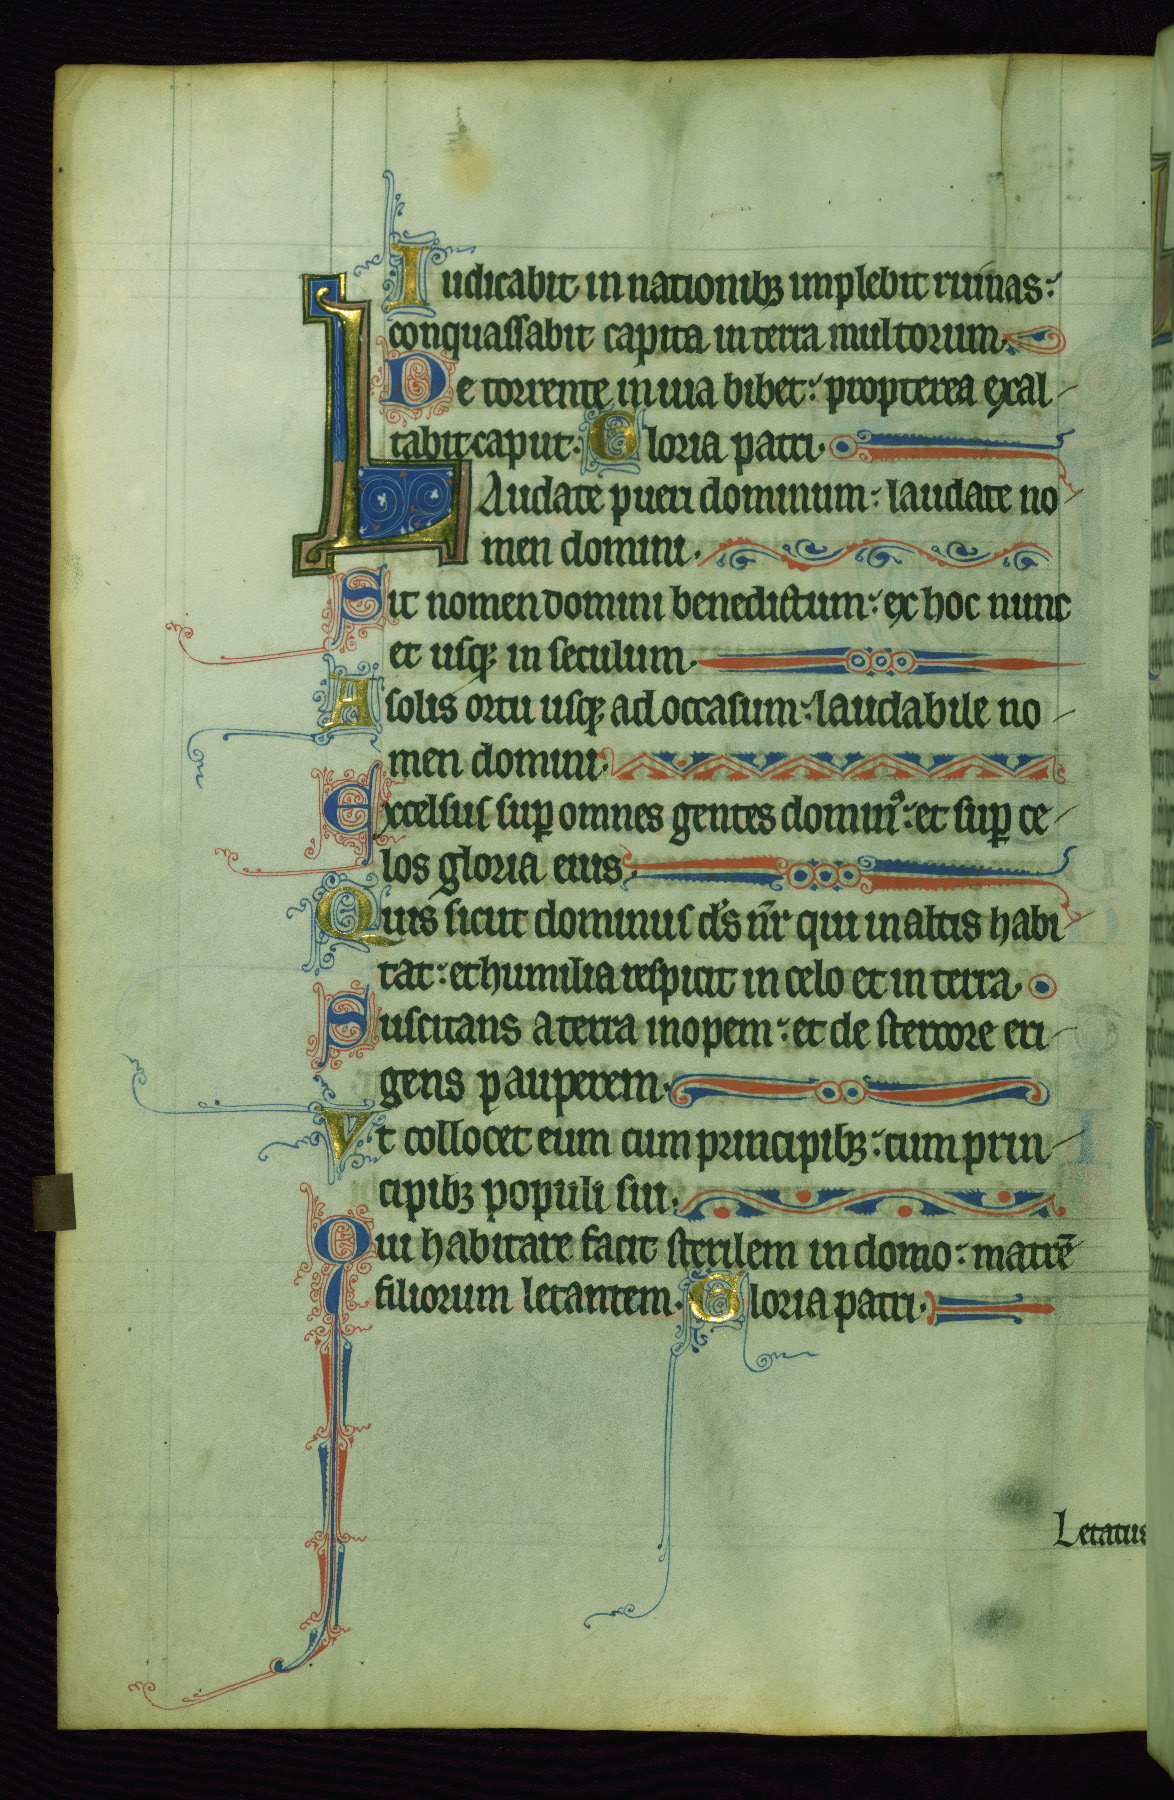 Iudicabit in nationibꝫ implebit ruinas:
conquassabit capita in terra multorum.
De torrente in uia bibet: propterea exal
tabit caput. Gloria patri.
LAudate pueri dominum: laudate no
men domini.
Sit nomen domini benedictum: ex hoc nunc
et usqꝫ in seculum.
A solis ortu usqꝫ ad occasum: laudabile no
men domini.
Excelsus suꝑ omnes gentes dominꝰ: et suꝑ ce
los gloria eius.
Quis sicut dominus dꝰs nr̄ qui in altis habi
tat: et humilia respicit in celo et in terra.
Suscitans a terra inopem: et de stercore eri
gens pauperem.
Vt collocet eum cum principibꝫ: cum prin
cipibꝫ populi sui.
Qui habitare facit sterilem in domo: matrē
filiorum letantem. Gloria patri.
Letatus